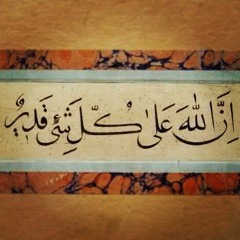 اِنَّ اللّٰهَ عَلٰى كُلِّ شَيْءٍ قَدِيرٌ